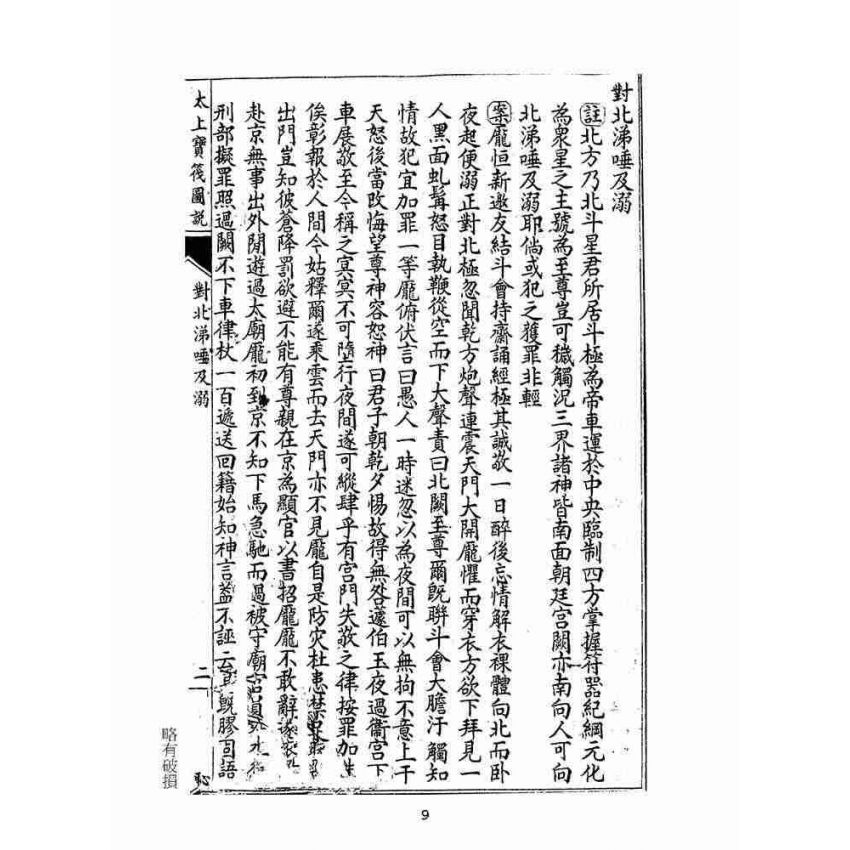 對北涕唾及溺
註北方乃北斗星君所居斗極為帝車運於中央臨制四方掌握符器紀綱元化
為衆星之主號為至尊豈可穢觸況三界諸神皆南面朝廷宮闕亦南向人可向
北涕唾及溺耶倘或犯之獲罪非輕
案龐恒新邀友結斗會持齋誦經極其誠敬一日醉後忘情解衣裸體向北而卧
夜起便溺正對北極忽聞乾方炮聲連震天門大開龐懼而穿衣方欲下拜見一
人黑面虬髯怒目執鞭從空而下大聲責曰北闕至尊爾既聯斗會大膽汙觸知
情故犯宜加罪一等龐俯伏言曰愚人一時迷忽以為夜間可以無拘不意上干
天怒後當改悔望尊神容恕神曰君子朝乾夕惕故得無咎蘧伯玉夜過衞宮下
車展敬至今稱之冥冥不可墮行夜間遂可縱肆乎有宮門失敬之律按罪加
俟彰報於人間今姑釋爾遂乘雲而去天門亦不見龐自是防灾杜患禁
出門豈知彼蒼降罰欲避不能有尊親在京為顯官以書招龐龐不敢辭遂
赴京無事出外閒遊過太廟龐初到京不知下馬急馳而過被守廟官
刑部擬罪照過闕不下車律杖一百遞送回籍始知神言葢不誣云
太上寶筏圖説
對北涕唾及溺
二一
略有破損
9